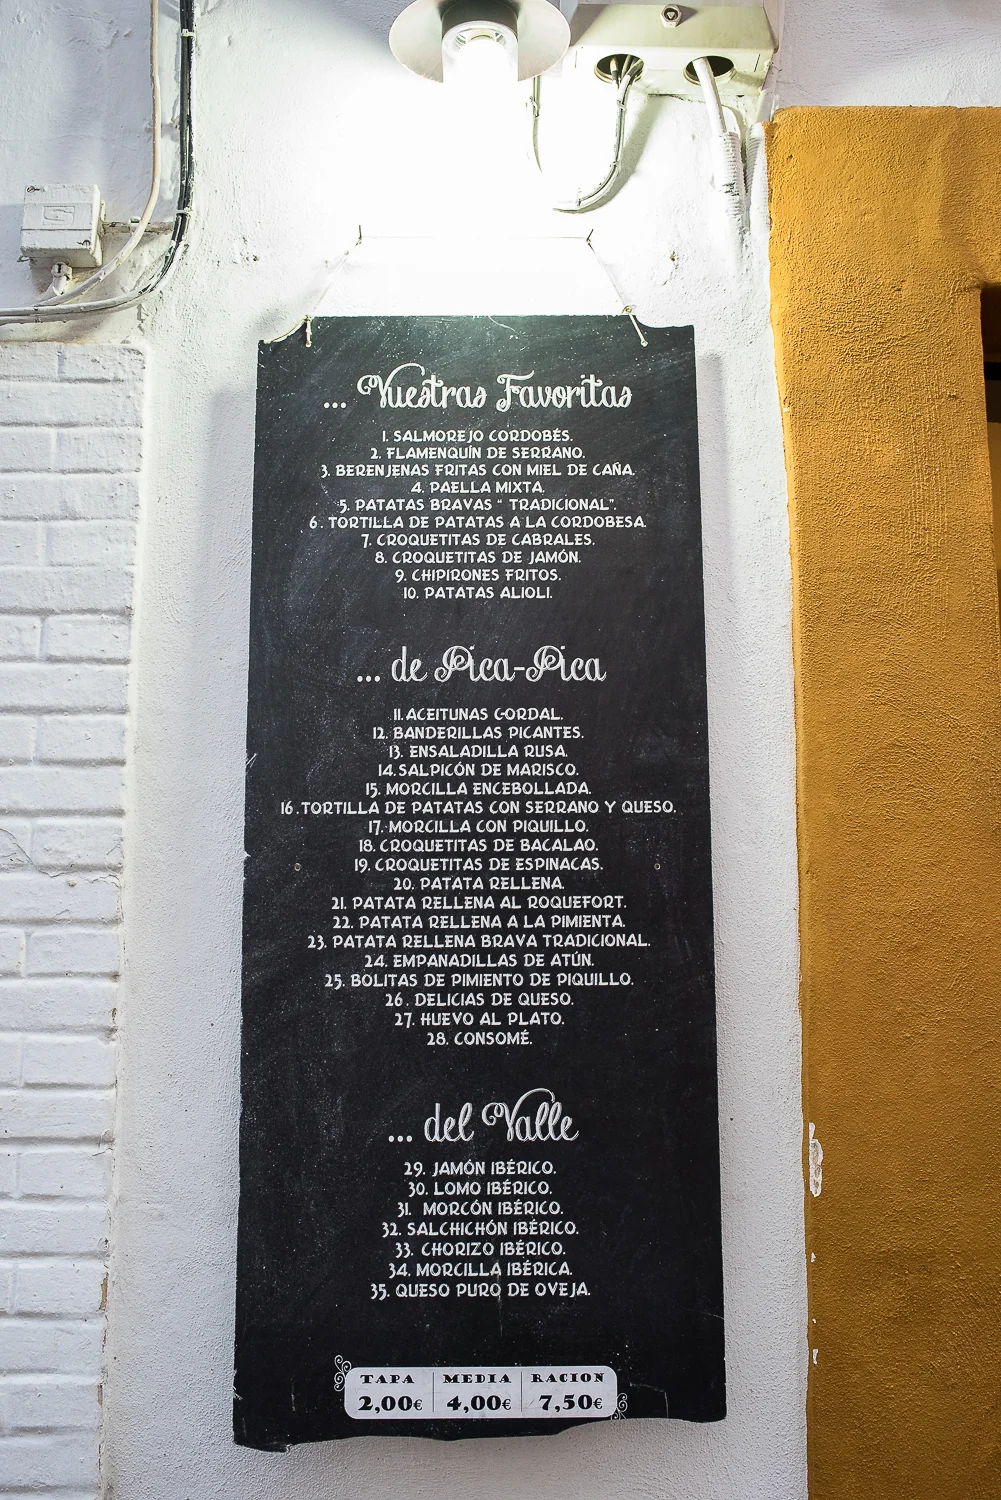 ... Vuestras Favoritas
1. SALMOREJO CORDOBÉS.
2. FLAMENQUÍN DE SERRANO.
3. BERENJENAS FRITAS CON MIEL DE CAÑA.
4. PAELLA MIXTA.
5. PATATAS BRAVAS " TRADICIONAL".
6. TORTILLA DE PATATAS A LA CORDOBESA.
7. CROQUETITAS DE CABRALES.
8. CROQUETITAS DE JAMÓN.
9. CHIPIRONES FRITOS.
10. PATATAS ALIOLI.
... de Pica-Pica
11. ACEITUNAS GORDAL.
12. BANDERILLAS PICANTES.
13. ENSALADILLA RUSA.
14. SALPICÓN DE MARISCO.
15. MORCILLA ENCEBOLLADA.
16. TORTILLA DE PATATAS CON SERRANO Y QUESO.
17. MORCILLA CON PIQUILLO.
18. CROQUETITAS DE BACALAO.
19. CROQUETITAS DE ESPINACAS.
20. PATATA RELLENA.
21. PATATA RELLENA AL ROQUEFORT.
22. PATATA RELLENA A LA PIMIENTA.
23. PATATA RELLENA BRAVA TRADICIONAL.
24. EMPANADILLAS DE ATÚN.
25. BOLITAS DE PIMIENTO DE PIQUILLO.
26. DELICIAS DE QUESO.
27. HUEVO AL PLATO.
28. CONSOMÉ.
... del Valle
29. JAMÓN IBÉRICO.
30. LOMO IBÉRICO.
31. MORCÓN IBÉRICO.
32. SALCHICHÓN IBÉRICO.
33. CHORIZO IBÉRICO.
34. MORCILLA IBÉRICA.
35. QUESO PURO DE OVEJA.
TAPA MEDIA RACION
2,00€ 4,00€ 7,50€